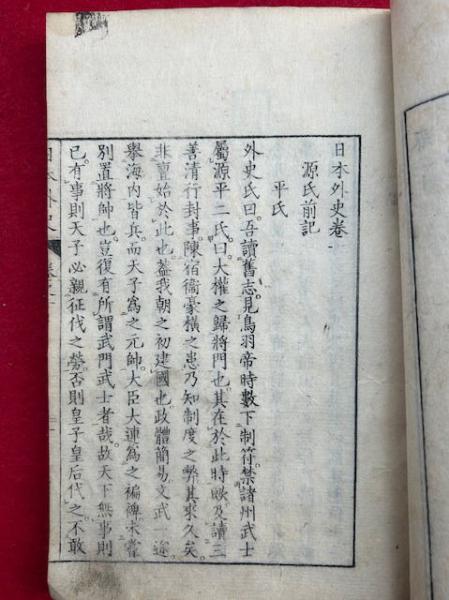 日本外史卷一
源氏前記
平氏
外史氏曰。吾讀舊志。見鳥羽帝時數下制符。禁諸州武士
屬源平二氏。曰。大權之歸將門也。其在於此時歟。及讀三
善清行封事。陳宿衞豪橫之患。乃知制度之弊。其來久矣。
非亶始於此也。蓋我朝之初建國也。政體簡易。文武一途。
擧海内皆兵。而天子爲之元帥。大臣大連爲之褊裨。未嘗
別置將帥也。豈復有所謂武門武士者哉。故天下無事則
已。有事則天子必親征伐之勞。否則皇子皇后代之。不敢
日本外史 卷之一